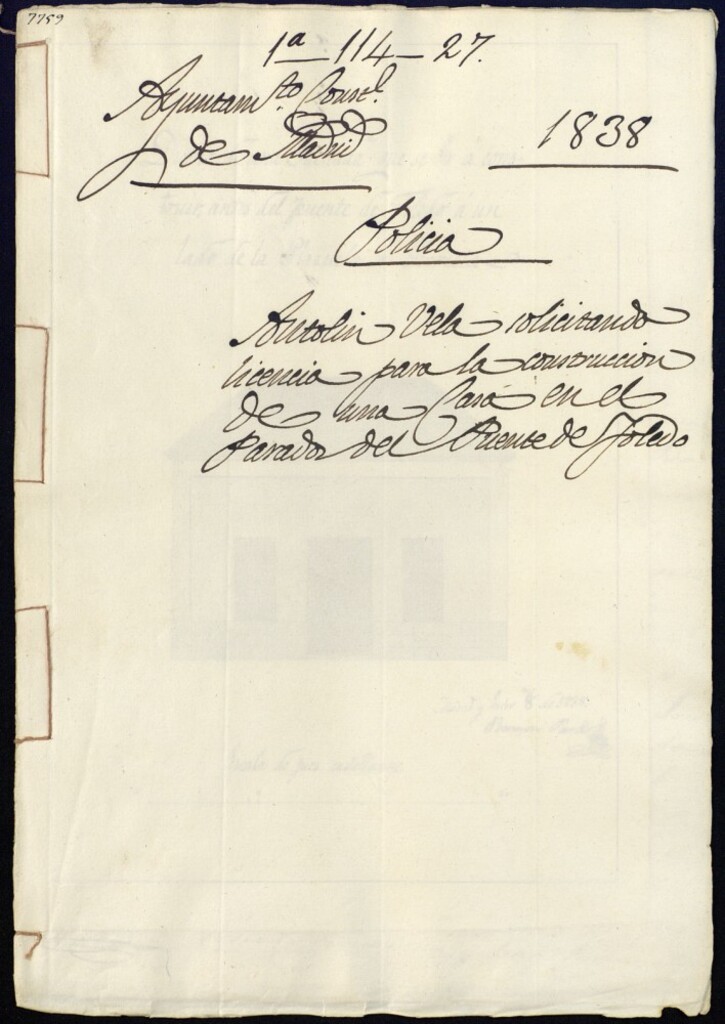 7759
1ª 114-27.
Ayuntamto. Constl.
de Madrid
1838
Policia
Antolin Vela solicitando
licencia para la construccion
de una Casa en el
Parador del Puente de Toledo